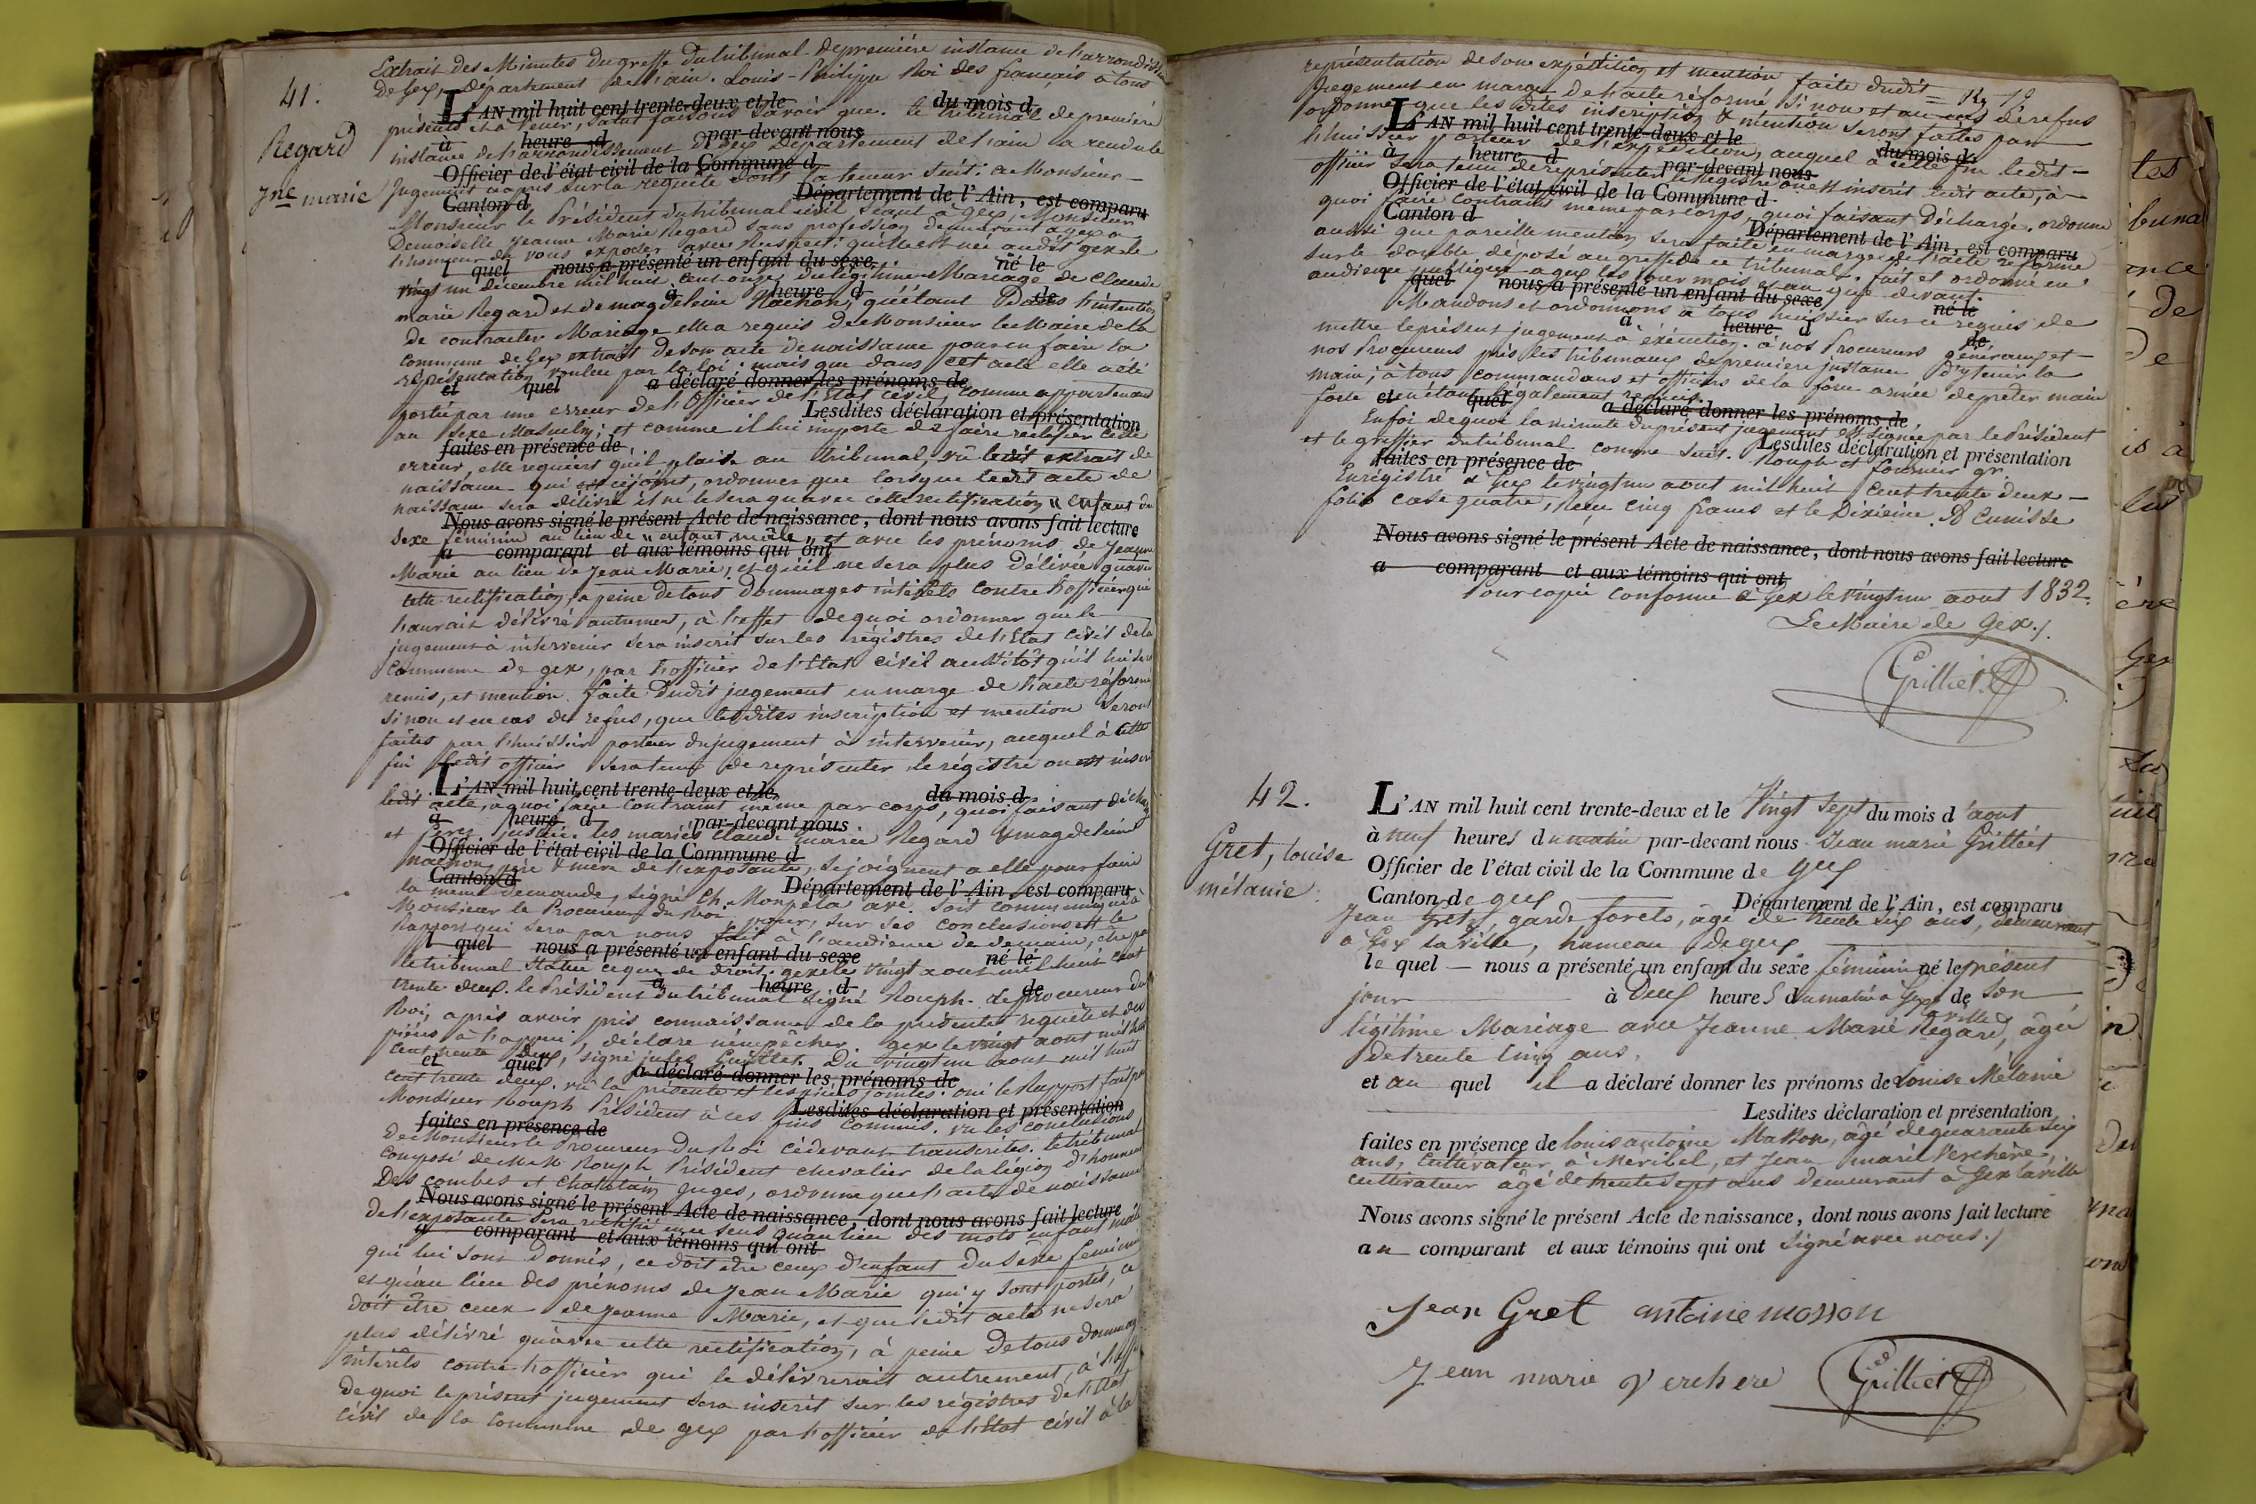 41.
Regard
Jne marie
Extrait des Minutes du greffe du tribunal de première instance de l'arrondisse
De Gex, département de l'ain. Louis-Philippe Roi des français, à tous
L'AN mil huit cent trente-deux et le du mois d
présents et à venir, salut faisons savoir que. le tribunal de première
à heure d par-devant nous
instance de l'arrondissement de Gex Département de l'ain a rendu le
Officier de l'état civil de la Commune d
Jugement ci après sur la requête dont la teneur suit: à Monsieur
Canton d Département de l'Ain, est comparu
Monsieur le Président du tribunal civil séant à Gex, Monsieur
Demoiselle Jeanne Marie Regard sans profession demeurant à gex a
l'honneur de vous exposer avec Respect: qu'elle est née audit gex le
l quel nous a présenté un enfant du sexe né le
vingt un décembre mil huit cent onze, du légitime Mariage de Claude
à heure d de
marie Regard et de magdelaine Nachon, qu'étant Dans l'intention
De contracter Mariage elle a requis De Monsieur le Maire de la
commune de Gex extrait de son acte de naissance pour en faire la
représentation voulue par la loi: mais que dans cet acte elle a été
et quel a déclaré donner les prénoms de
porté par une erreur de l'Officier de l'Etat civil, comme appartenant
Lesdites déclaration et présentation
au sexe Masculin; et comme il lui importe de faire rectifier cette
faites en présence de
erreur, elle requiert qu'il plaise au tribunal, vû ledit extrait de
naissance qui est cijoint, ordonner que lorsque ledit acte de
naissance sera délivré il ne le sera qu'avec cette rectification "enfant du
Nous avons signé le présent Acte de naissance, dont nous avons fait lecture
sexe féminin au lieu de "enfant mâle" et avec les prénoms de Jeanne
a comparant et aux témoins qui ont
Marie au lieu de Jean Marie, et qu'il ne sera plus délivré qu'avec
cette rectification à peine de tous dommages intérêts contre l'officier qui
l'aurait délivré autrement, à l'effet de quoi ordonner que le
jugement à intervenir sera inscrit sur les régistres de l'Etat civil de la
Commune de gex, par l'officier de l'Etat civil aussitôt qu'il lui sera
remis, et mention faite dudit jugement en marge de l'acte réformé
si non et en cas de refus, que lesdites inscription et mention seront
faites par l'huissier porteur du jugement à intervenir, auquel à cette
fin ledit officier sera tenu de représenter le régistre ou est inscrit
L'AN mil huit cent trente-deux et le du mois d
ledit acte, à quoi faire contraint même par corps, quoi faisant décharge
à heure d par-devant nous
et ferez justice. les mariés Claude marie Regard & magdelaine
Officier de l'état civil de la Commune d
Nachon père & mère de l'exposante, se joignent a elle pour faire
Canton d Département de l'Ain, est comparu
la même demande, signé Ch. Monpela avé. soit communiqué à
Monsieur le Procureur du Roi, pour, sur ses conclusions et le
Rapport qui sera par nous fait à l'audience de demain, être par
l quel nous a présenté un enfant du sexe né le
le tribunal statué ce que de droit. gex le vingt aout mil huit cent
à heure d de
trente deux. le Président du tribunal signé Rouph. Le procureur du
Roi, après avoir pris connaissance de la présente requête et des
pièces à l'appui, déclare n'empêcher. gex le vingt aout mil huit
cent trente deux, signé jules Du vingt un aout mil huit
et quel a déclaré donner les prénoms de
cent trente deux. vû la présente et les pièces jointes: oui le Rapport fait par
Monsieur Rouph Président à ces fins commis. vu les conclusions
Lesdites déclaration et présentation
faites en présence de
de Monsieur le Procureur Du Roi cidevant transcrites. le tribunal
composé de MM. Rouph Président chevalier de la légion d'honneur
Descombes et Chatelain juges, ordonne que l'acte de naissance
Nous avons signé le présent Acte de naissance, dont nous avons fait lecture
de l'exposante sera rectifié en ce sens qu'au lieu des mots enfant mâle
a comparant et aux témoins qui ont
qui lui sont donnés, ce doit être ceux d'enfant du sexe féminin
et qu'au lieu des prénoms de Jean Marie qui y sont portés, ce
doit être ceux de Jeanne Marie, et que ledit acte ne sera
plus délivré qu'avec cette rectification, à peine de tous dommages
intérêts contre l'officier qui le délivrerait autrement, à l'effet
de quoi le présent jugement sera inscrit sur les régistres de l'Etat
civil de la Commune de gex par l'officier de l'Etat civil à la
représentation de son expédition et mention faite dudit
jugement en marge de l'acte réformé si non et au cas de refus
ordonne que les dites inscription & mention seront faites par
L'AN mil huit cent trente-deux et le du mois d
l'huissier porteur de l'expédition, auquel à cette fin ledit
à heure d par-devant nous
officier sera tenu de représenter le Régistre où est inscrit ledit acte, à
Officier de l'état civil de la Commune d
quoi faire contraint même par corps, quoi faisant Déchargé, ordonne
Canton d Département de l'Ain, est comparu
aussi que pareille mention sera faite en marge de l'acte réformé
sur le double déposé au greffe de ce tribunal. fait et ordonné en
audience publique a gex les jour mois et an que devant.
quel nous a présenté un enfant du sexe né le
Mandons et ordonnons à tous huissiers sur ce requis de
à heure d de
mettre le présent jugement à éxécution. à nos Procureurs généraux et
nos Procureurs près les tribunaux de première instance d'y tenir la
main; à tous commandans et officiers de la force armée de prêter main
forte en étant légalement requis.
et quel a déclaré donner les prénoms de
En foi de quoi la minute du présent jugement est signée par le Président
et le greffier du tribunal comme suit. Rouph et fournier gr.
Lesdites déclaration et présentation
faites en présence de
Enrégistré à Gex le vingt un aout mil huit cent trente deux
folio case quatre, Reçu cinq francs et le Dixième.
Nous avons signé le présent Acte de naissance, dont nous avons fait lecture
a comparant et aux témoins qui ont
Pour copie conforme à Gex le vingt un aout 1832.
Le Maire de Gex.
Grilliet
42.
Gret, louise
mélanie.
L'AN mil huit cent trente-deux et le Vingt sept du mois d'aout
à neuf heures du matin par-devant nous Jean marie Grilliet
Officier de l'état civil de la Commune de Gex
Canton de gex Département de l'Ain, est comparu
Jean Gret, garde forets, âgé de trente six ans, demeurant
à Gex la ville, hameau de gex
le quel nous a présenté un enfant du sexe féminin né le présent
jour à Deux heures du matin à Gex la ville de son
légitime Mariage avec Jeanne Marie Regard, âgée
de trente cinq ans.
et au quel il a déclaré donner les prénoms de Louise Mélanie
Lesdites déclaration et présentation
faites en présence de louis antoine Masson, âgé de quarante six
ans, cultivateur à Méribel, et Jean marie Verchère,
cultivateur âgé de trente sept ans demeurant à Gex la ville
Nous avons signé le présent Acte de naissance, dont nous avons fait lecture
au comparant et aux témoins qui ont signé avec nous.
Jean Gret antoine masson
Jean marie Verchere Grilliet